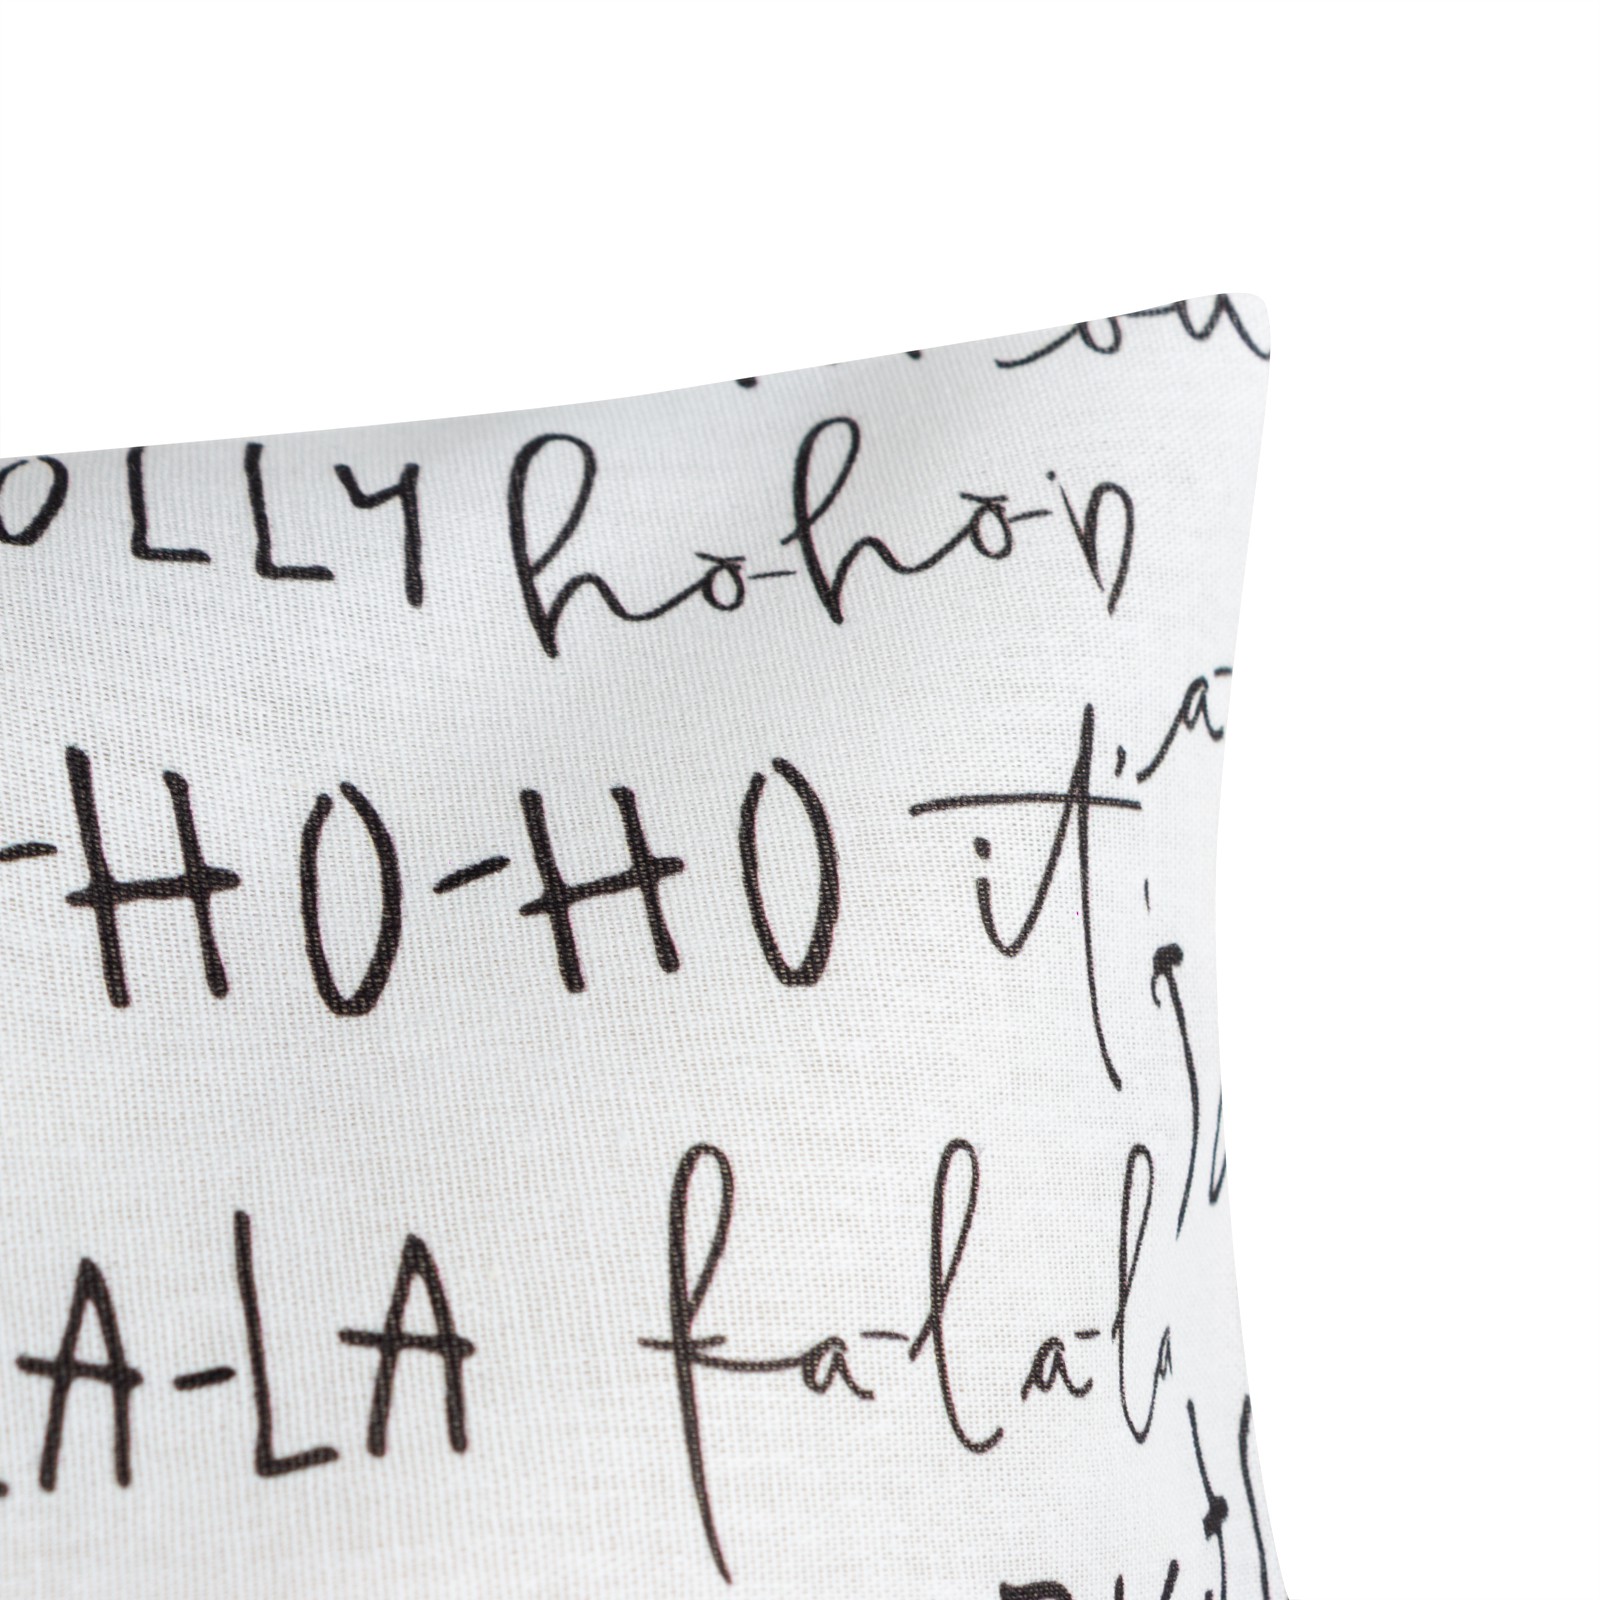 OLLY ho-ho-h
-HO-HO it's a
A-LA fa-la-la